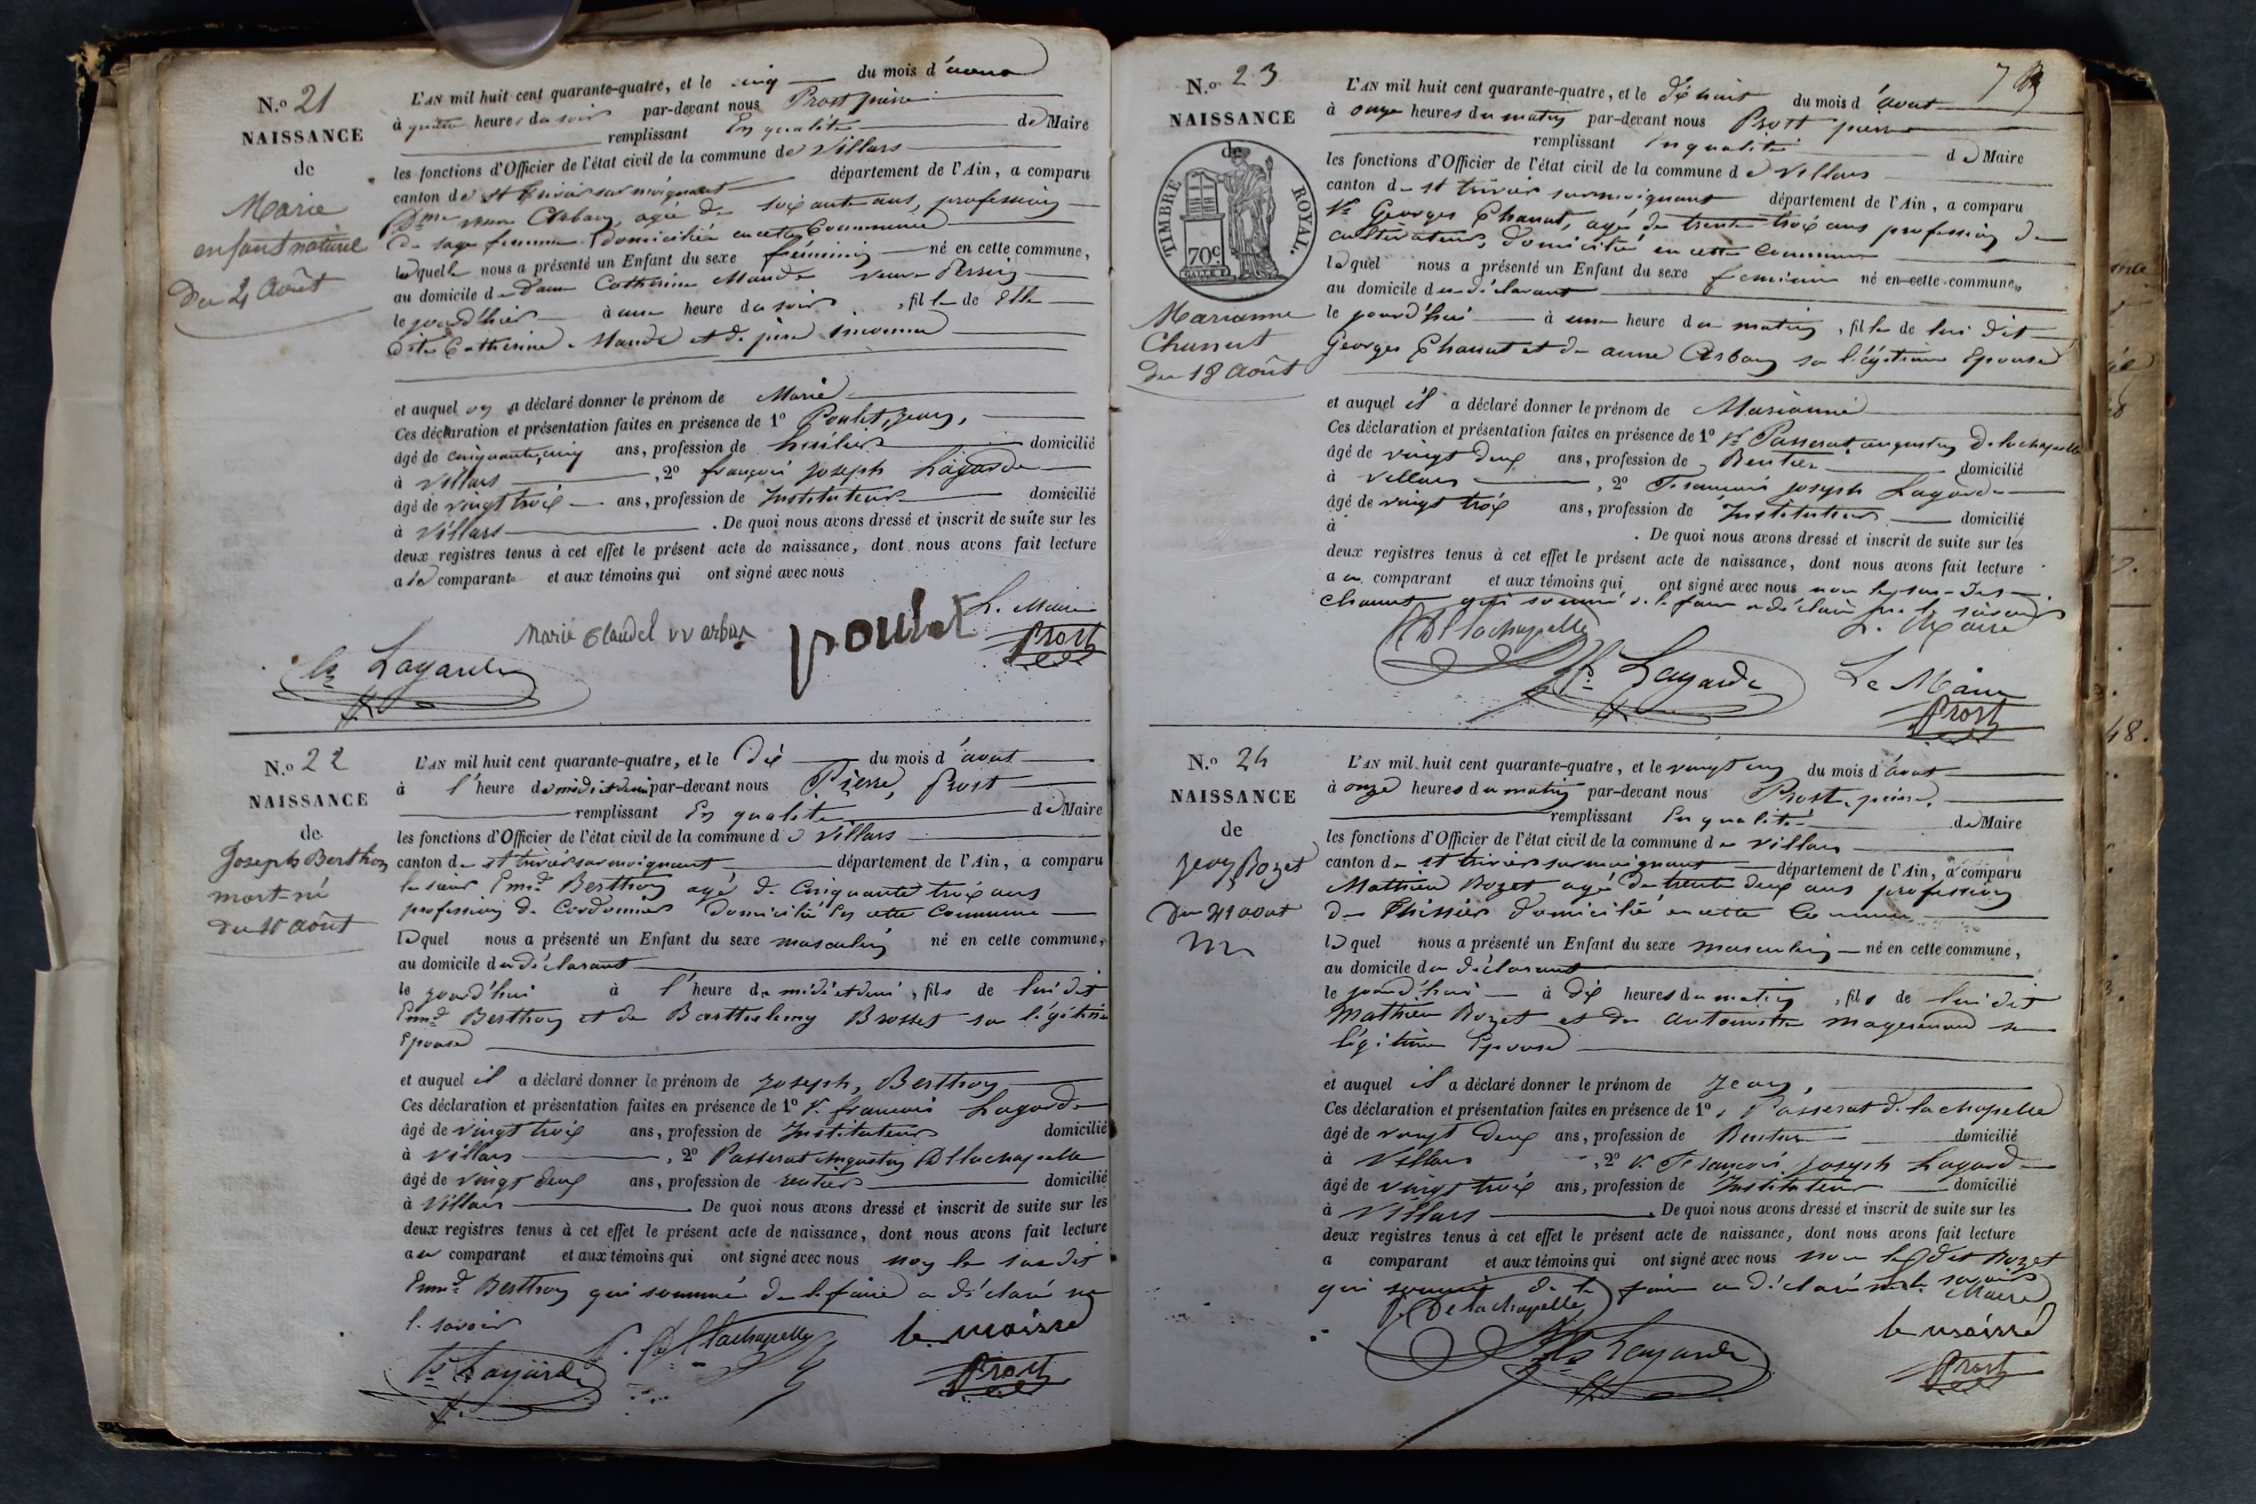 N.o 21
NAISSANCE
de
Marie
enfant naturel
Du 4 Août
L'AN mil huit cent quarante-quatre, et le cinq du mois d'
à quatre heures du soir par-devant nous Prost pierre
remplissant En qualité de Maire
les fonctions d'Officier de l'état civil de la commune de Villars
canton de st trivier sur moignant département de l'Ain, a comparu
Dme veuve Arban, agée de soixante ans, profession
de sage femme domiciliée en cette Commune
laquelle nous a présenté un Enfant du sexe féminin né en cette commune,
au domicile de dame Catherine Mande veuve Perrin
le jourd'hier à une heure du soir, fille de Elle
dite Catherine Mande et de père inconnu
et auquel on a déclaré donner le prénom de Marie
Ces déclaration et présentation faites en présence de 1º Poulet, Jean,
âgé de cinquante cinq ans, profession de huilier domicilié
à Villars, 2º françois joseph Lagarde
âgé de vingt trois ans, profession de Instituteur domicilié
à Villars. De quoi nous avons dressé et inscrit de suite sur les
deux registres tenus à cet effet le présent acte de naissance, dont nous avons fait lecture
a la comparante et aux témoins qui ont signé avec nous
Marie Claudel vv arban poulet L. Maire
Prost
Lagarde
N.o 22
NAISSANCE
de
Joseph Berthon
mort-né
du 10 août
L'AN mil huit cent quarante-quatre, et le Dix du mois d'aout
à l'heure de midi et demi par-devant nous Pierre, Prost
remplissant En qualité de Maire
les fonctions d'Officier de l'état civil de la commune de Villars
canton de st trivier sur moignant département de l'Ain, a comparu
le sieur Emd Berthon agé de Cinquante trois ans
profession de Cordonnier domicilié En cette Commune
lequel nous a présenté un Enfant du sexe masculin né en cette commune,
au domicile du déclarant
le jourd'hui à l'heure de midi et demi, fils de lui dit
Emd Berthon et de Barthelemy Brosset sa légitime
Epouse
et auquel il a déclaré donner le prénom de joseph, Berthon
Ces déclaration et présentation faites en présence de 1º Sr francois Lagarde
âgé de vingt trois ans, profession de Instituteur domicilié
à Villars, 2º Passerat Augustin De lachapelle
âgé de vingt deux ans, profession de rentier domicilié
à Villars. De quoi nous avons dressé et inscrit de suite sur les
deux registres tenus à cet effet le présent acte de naissance, dont nous avons fait lecture
au comparant et aux témoins qui ont signé avec nous non le susdit
Emd Berthon qui sommé de le faire a déclaré ne
le savoir
Lagarde De lachapelle le maire
Prost
N.o 23
NAISSANCE
de
TIMBRE ROYAL.
70c
Marianne
Chanut
Du 18 Août
L'AN mil huit cent quarante-quatre, et le dix huit du mois d'aout
à onze heures du matin par-devant nous Prost pierre
remplissant En qualité de Maire
les fonctions d'Officier de l'état civil de la commune de Villars
canton de st trivier sur moignant département de l'Ain, a comparu
Sr Georges Chanut, agé de trente trois ans profession de
cultivateur, domicilié en cette Commune
lequel nous a présenté un Enfant du sexe feminin né en cette commune,
au domicile du déclarant
le jourd'hui à une heure du matin, fille de lui dit
Georges Chanut et de anne Arban sa légitime Epouse
et auquel il a déclaré donner le prénom de Marianne
Ces déclaration et présentation faites en présence de 1º Sr Passerat, augustin De lachapelle
âgé de vingt deux ans, profession de Rentier domicilié
à Villars, 2º Francois joseph Lagarde
âgé de vingt trois ans, profession de Instituteur domicilié
à. De quoi nous avons dressé et inscrit de suite sur les
deux registres tenus à cet effet le présent acte de naissance, dont nous avons fait lecture
a u comparant et aux témoins qui ont signé avec nous non le sus-dit
Chanut qui sommé de le faire a déclaré ne le savoir
L. Maire
De lachapelle Lagarde Le Maire
Prost
N.o 24
NAISSANCE
de
Jean Bozet
Du 21 aout
L'AN mil huit cent quarante-quatre, et le vingt un du mois d'aout
à onze heures du matin par-devant nous Prost, pierre,
remplissant En qualité de Maire
les fonctions d'Officier de l'état civil de la commune de Villars
canton de st trivier sur moignant département de l'Ain, a comparu
Mathieu Bozet agé de trente deux ans profession
de domicilié en cette Commune
lequel nous a présenté un Enfant du sexe masculin né en cette commune,
au domicile du déclarant
le jourd'hui à dix heures du matin, fils de lui dit
Mathieu Bozet et de antoinette sa
légitime Epouse
et auquel il a déclaré donner le prénom de Jean,
Ces déclaration et présentation faites en présence de 1º Passerat De lachapelle
âgé de vingt deux ans, profession de Rentier domicilié
à Villars, 2º Sr Francois joseph Lagarde
âgé de vingt trois ans, profession de Instituteur domicilié
à Villars. De quoi nous avons dressé et inscrit de suite sur les
deux registres tenus à cet effet le présent acte de naissance, dont nous avons fait lecture
a comparant et aux témoins qui ont signé avec nous non le dit Bozet
qui sommé de le faire a déclaré ne le savoir
De lachapelle Maire
Lagarde le maire
Prost